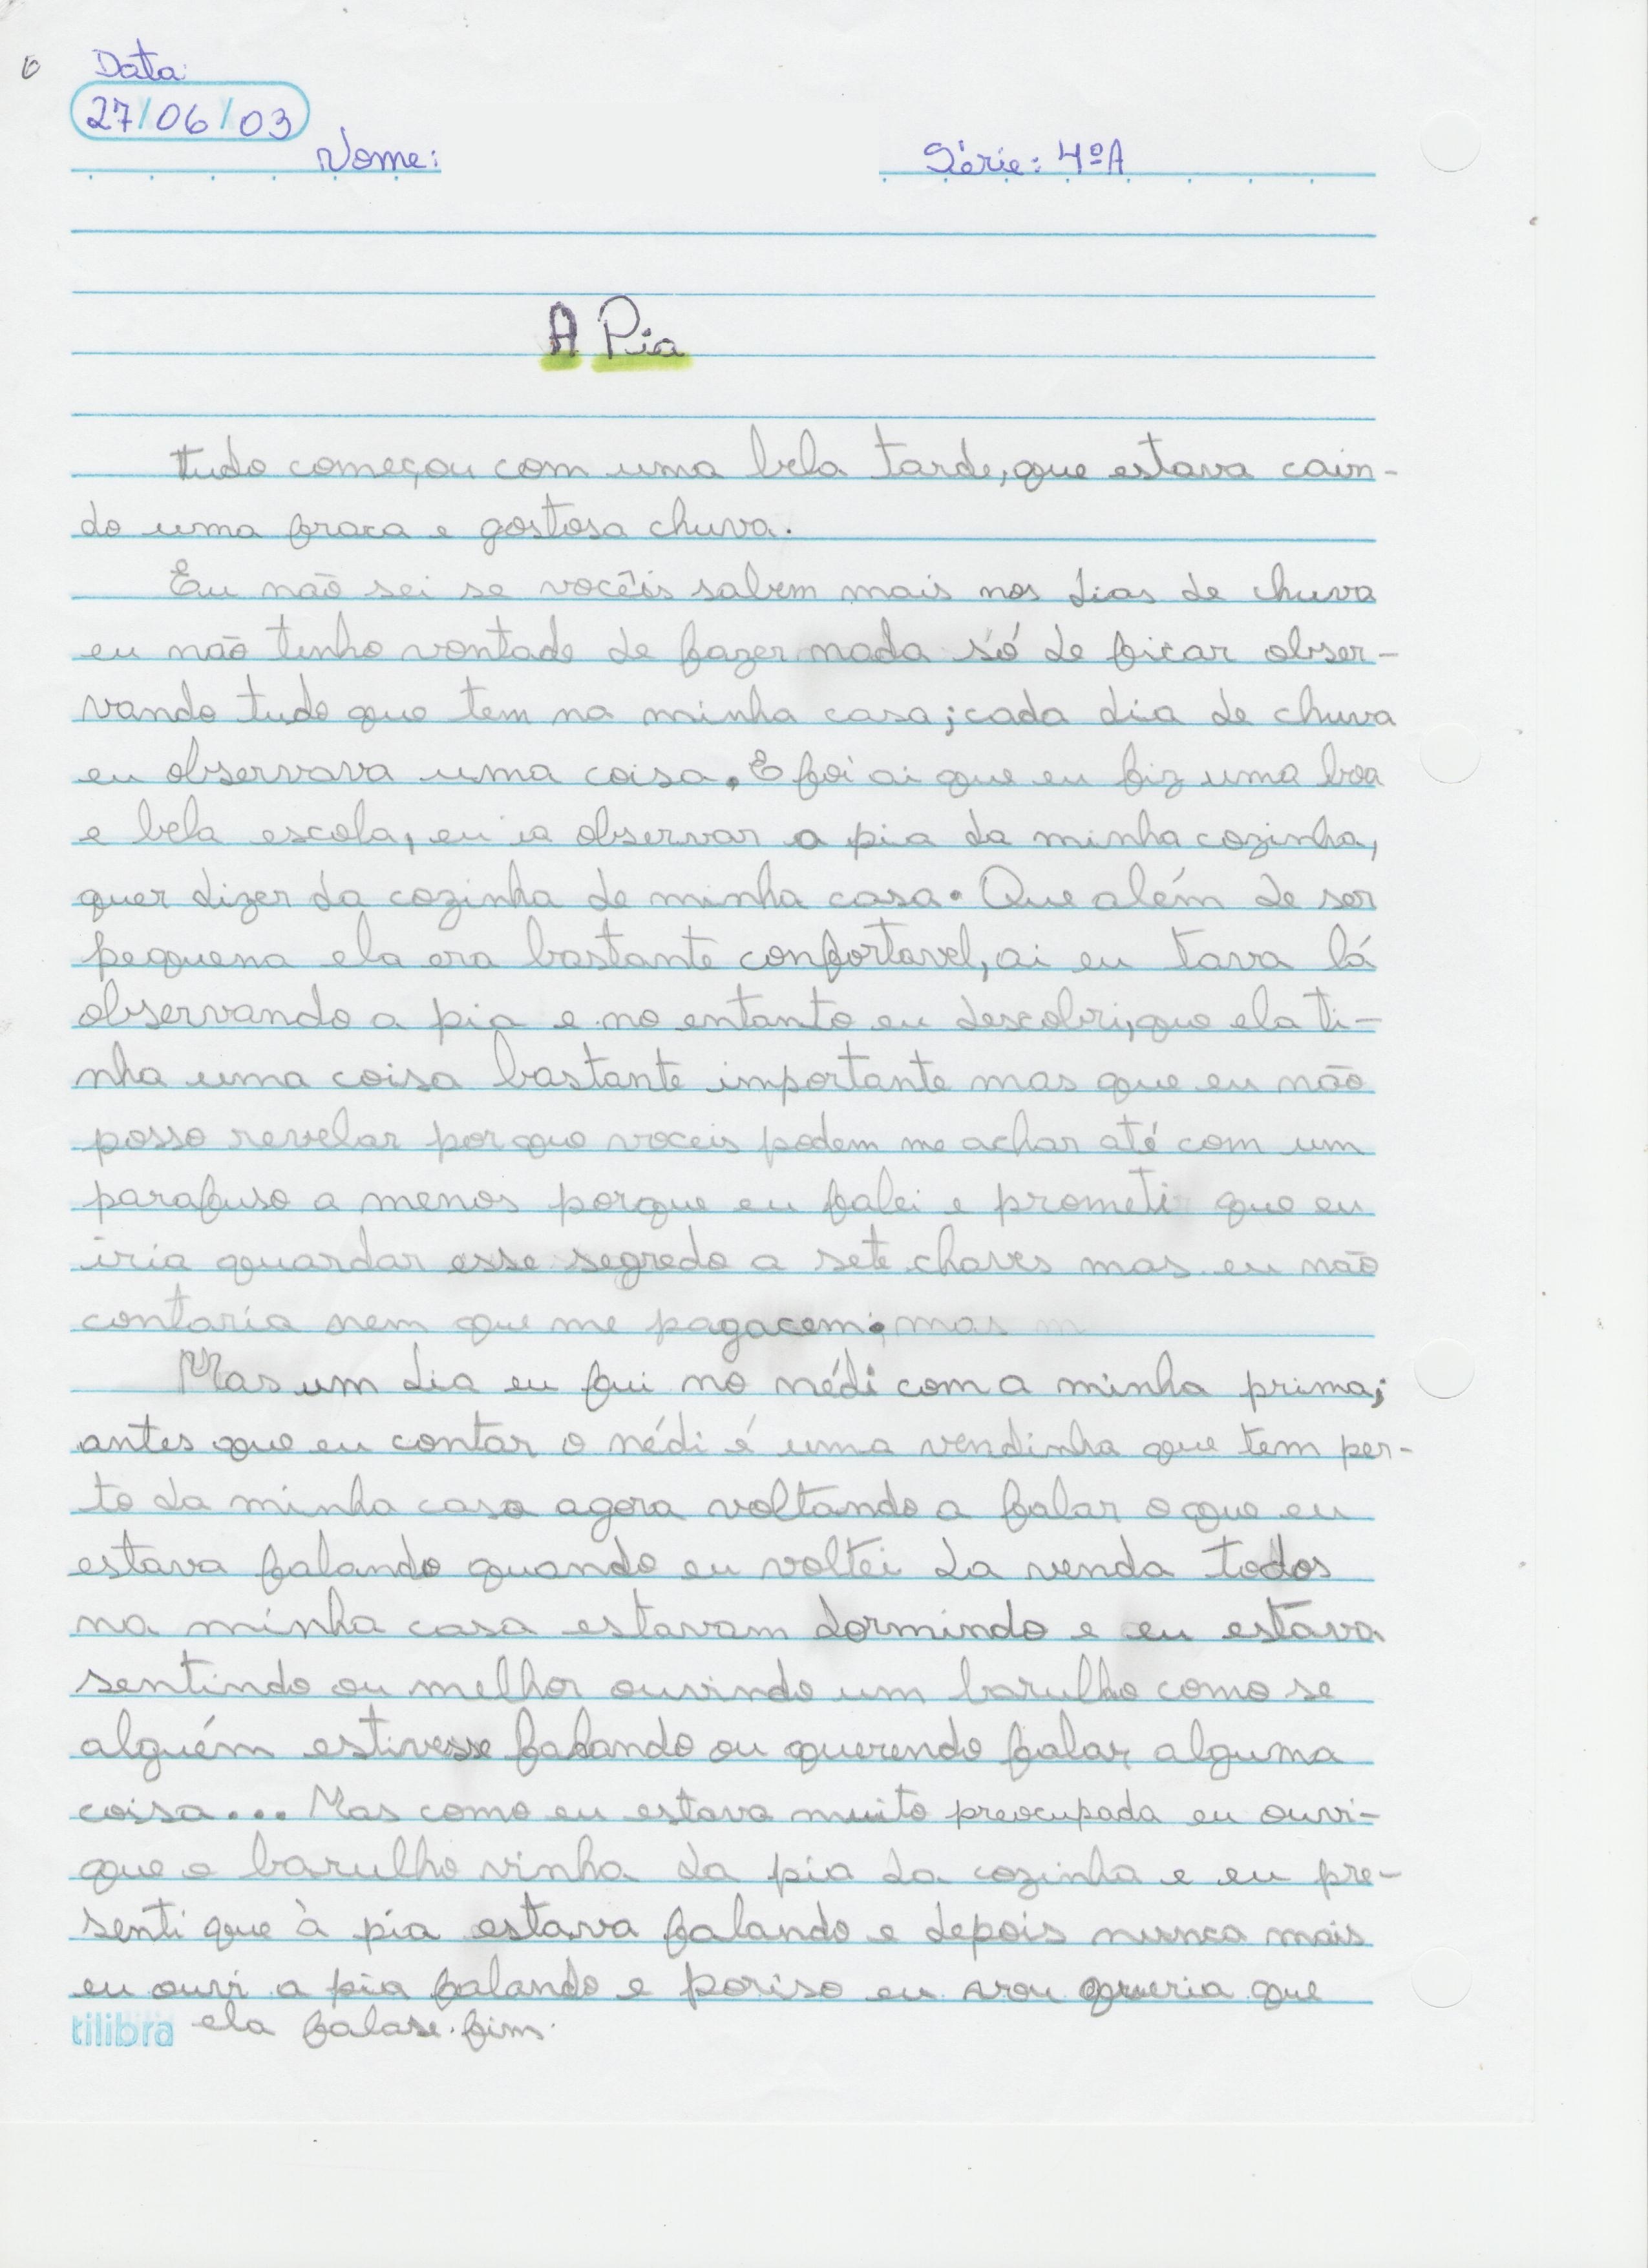 Data:
27/06/03
Nome: Série: 4ºA
A Pia
tudo começou com uma bela tarde, que estava cain-
do uma fraca e gostosa chuva.
Eu não sei se vocêis sabem mais nos dias de chuva
eu não tenho vontade de fazer nada só de ficar obser-
vando tudo que tem na minha casa; cada dia de chuva
eu observava uma coisa. E foi ai que eu fiz uma boa
e bela escola, eu ia observar a pia da minha cozinha,
quer dizer da cozinha de minha casa. Que além de ser
pequena ela era bastante confortavel, ai eu tava lá
observando a pia e no entanto eu descobri, que ela ti-
nha uma coisa bastante importante mas que eu não
posso revelar porque voceis podem me achar até com um
parafuso a menos porque eu falei e prometi que eu
iria guardar esse segredo a sete chaves mas eu não
contaria nem que me pagacem; mas
Mas um dia eu fui no nédi com a minha prima;
antes que eu contar o nédi é uma vendinha que tem per-
to da minha casa agora voltando a falar o que eu
estava falando quando eu voltei da venda todos
na minha casa estavam dormindo e eu estava
sentindo ou melhor ouvindo um barulho como se
alguém estivesse falando ou querendo falar alguma
coisa... Mas como eu estava muito preocupada eu ouvi-
que o barulho vinha da pia da cozinha e eu pre-
senti que à pia estava falando e depois nunca mais
eu ouvi a pia falando e poriso eu queria que
tilibra ela falase. fim.